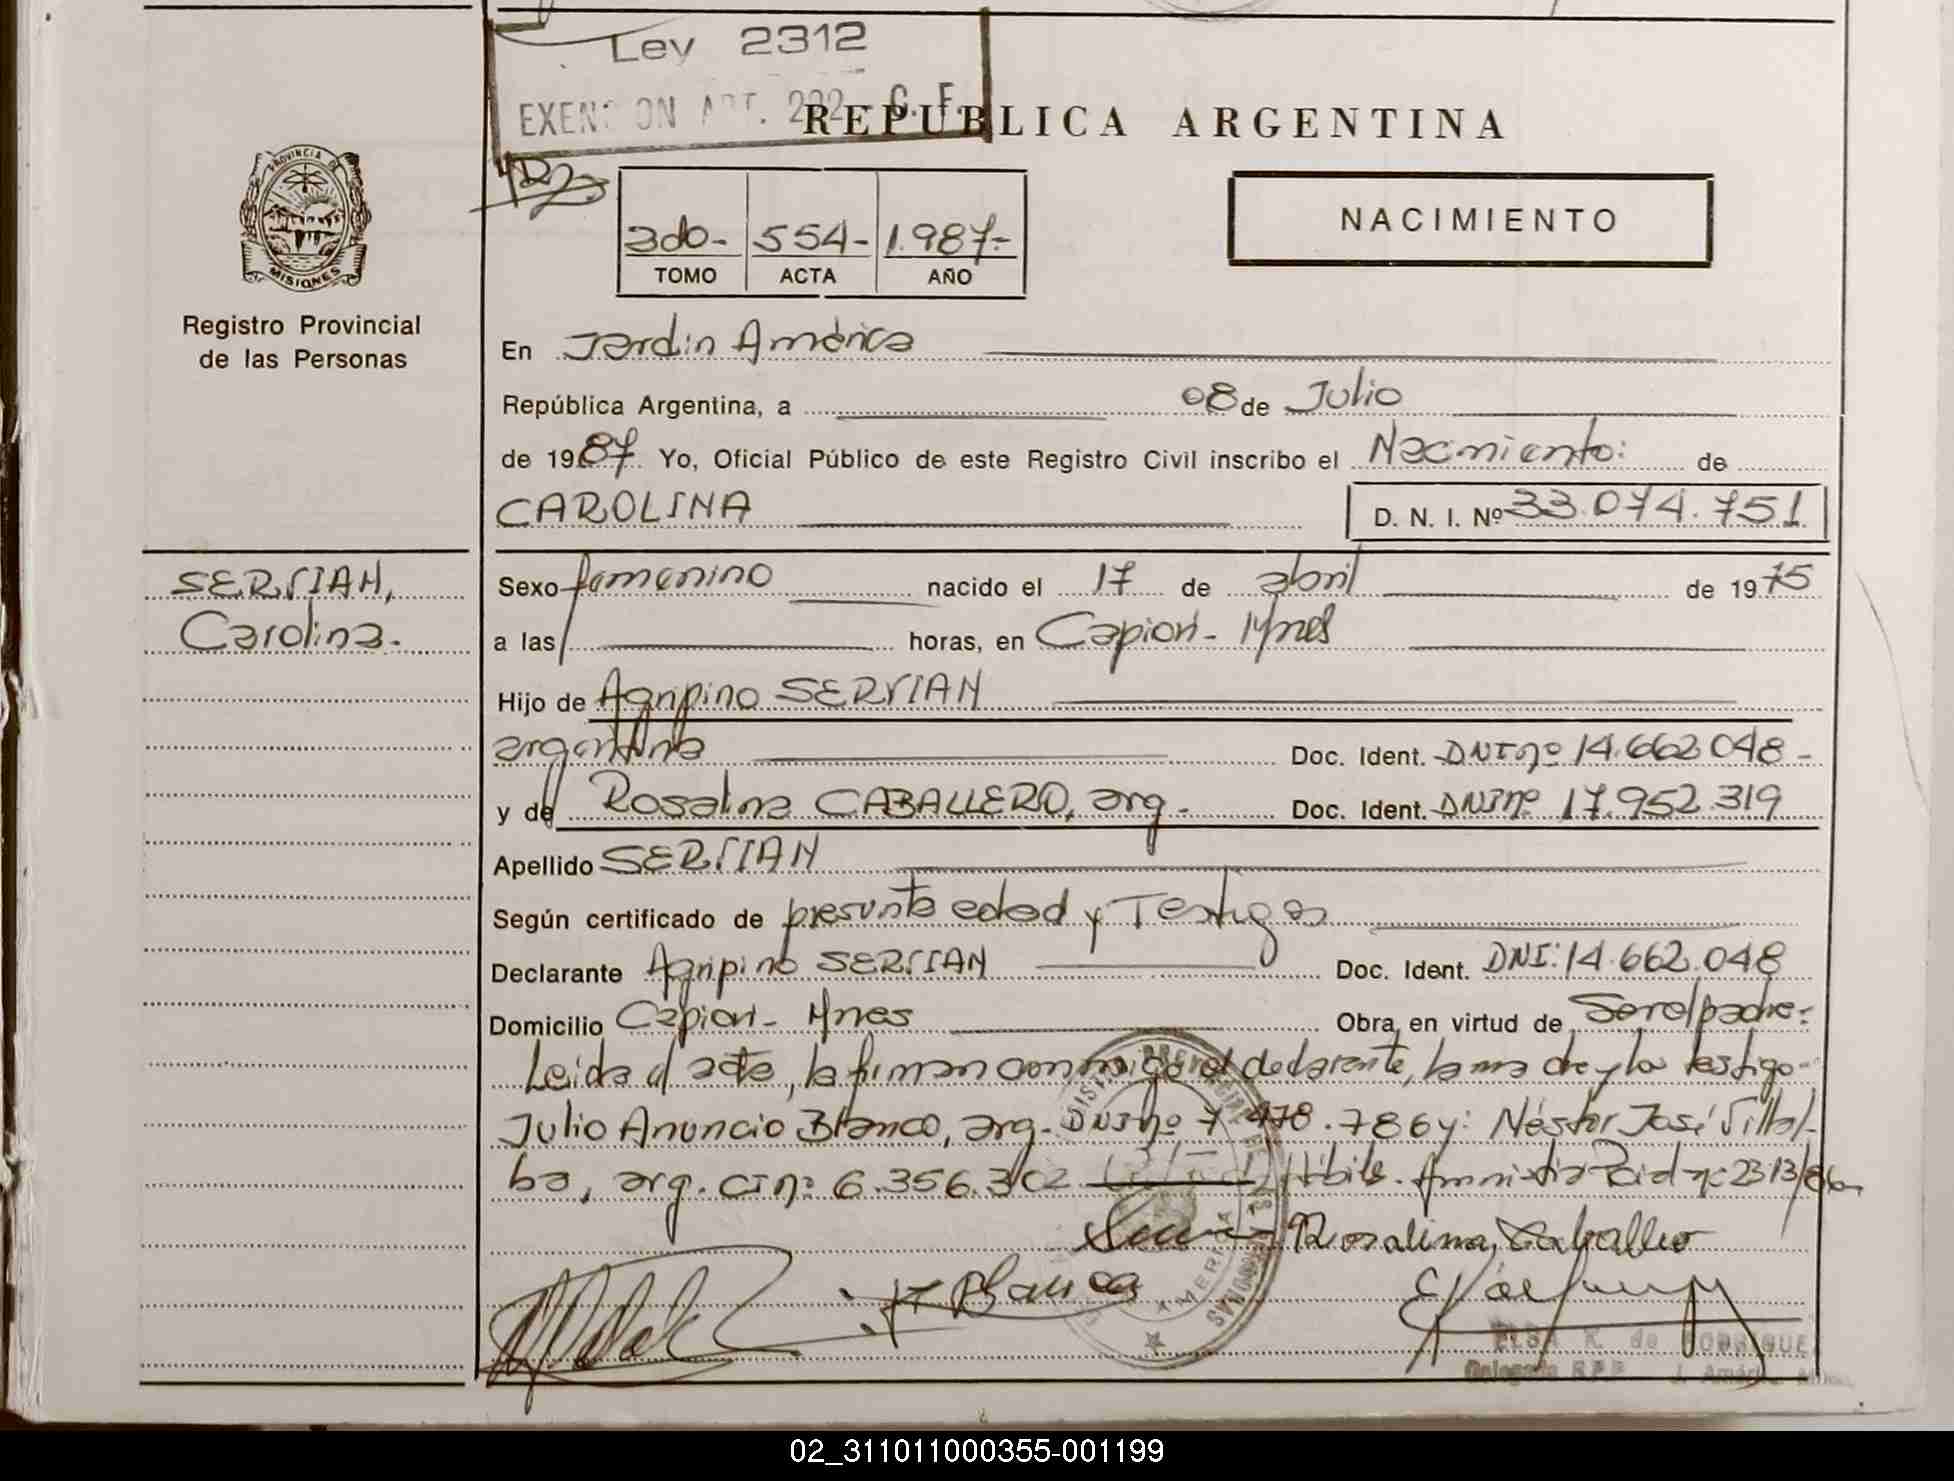 Ley 2312
EXENCION ART. 292 C. F.
REPUBLICA ARGENTINA
PROVINCIA DE
MISIONES
Registro Provincial
de las Personas
3do- 554- 1.987-
TOMO ACTA AÑO
NACIMIENTO
En Jardín América
República Argentina, a 08 de Julio
de 1987 Yo, Oficial Público de este Registro Civil inscribo el Nacimiento: de
CAROLINA D. N. I. Nº 33.074.751
SERVIAN,
Carolina.-
Sexo femenino nacido el 17 de abril de 1975
a las horas, en Capiovi- Mnes
Hijo de Agripino SERVIAN
argentina Doc. Ident. DNI nº 14.662.048-
y de Rosalina CABALLERO, arg.- Doc. Ident. DNI nº 17.952.319
Apellido SERVIAN
Según certificado de presunta edad y Testigos
Declarante Agripino SERVIAN Doc. Ident. DNI: 14.662.048
Domicilio Capiovi- Mnes Obra en virtud de Ser el padre.-
Leida el acta, la firman conmigo el declarante, la madre y los testigo-
Julio Anuncio Blanco, arg- DNI nº 7.478.786 y: Néstor José Villal-
ba, arg. CI nº 6.356.302 Amnistia 2313/86
Rosalina Caballero
Blanco
AMERICA
ELSA R. de RODRIGUE
Delegada R.P.P. J. América
02_311011000355-001199